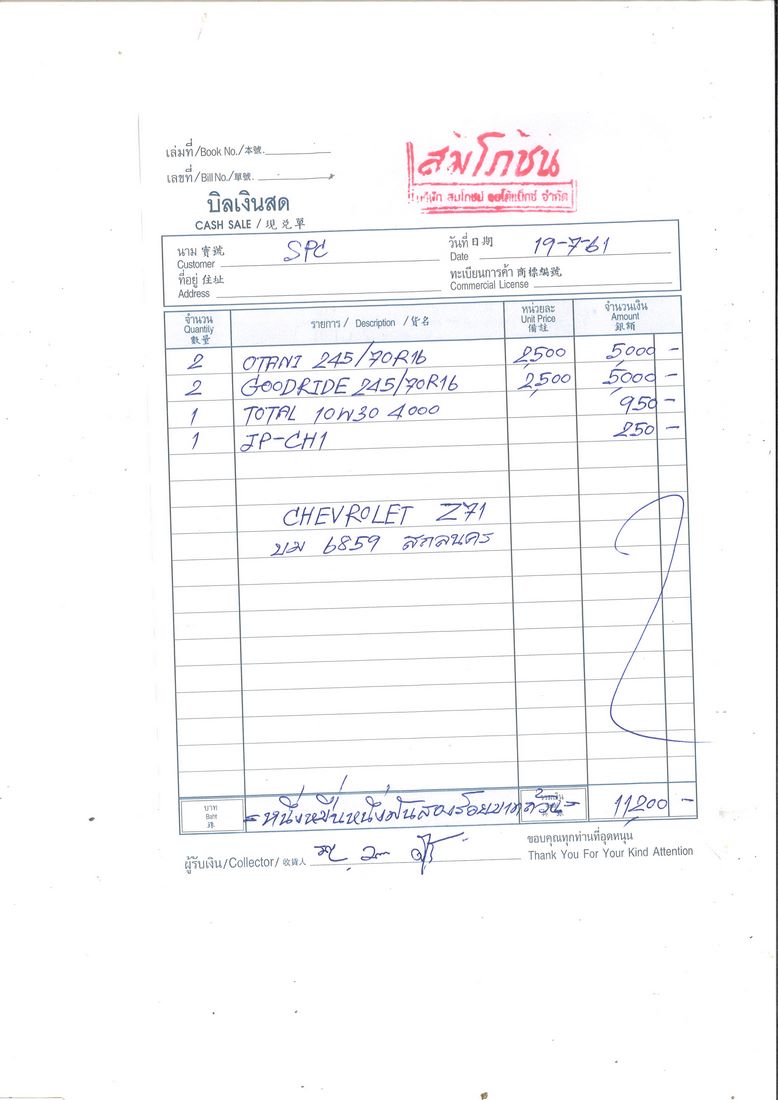 เล่มที่/Book No./本號.
เลขที่/Bill No./單號.
สมโภชน์
บริษัท สมโภชน์ ออโต้แม็กซ์ จำกัด
บิลเงินสด
CASH SALE / 現兑單
นาม 寳號 SPC วันที่ 日期 19-7-61
Customer Date
ที่อยู่ 住址 ทะเบียนการค้า 商標編號
Address Commercial License
จำนวน รายการ / Description / 貨名 หน่วยละ จำนวนเงิน
Quantily Unit Price Amount
數量 備註 銀額
2 OTANI 245/70R16 2500 5000 -
2 GOODRIDE 245/70R16 2500 5000 -
1 TOTAL 10W30 4000 950 -
1 JP-CH1 250 -
CHEVROLET Z71
บม 6859 สกลนคร
บาท =หนึ่งหมื่นหนึ่งพันสองร้อยบาทถ้วน= รวมเงิน 11200 -
Baht
ผู้รับเงิน/Collector/ 收貨人
ขอบคุณทุกท่านที่อุดหนุน
Thank You For Your Kind Attention